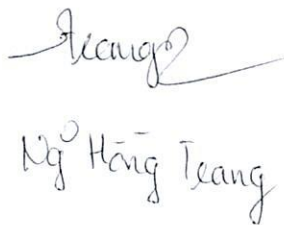 Trang
Ngô Hồng Trang